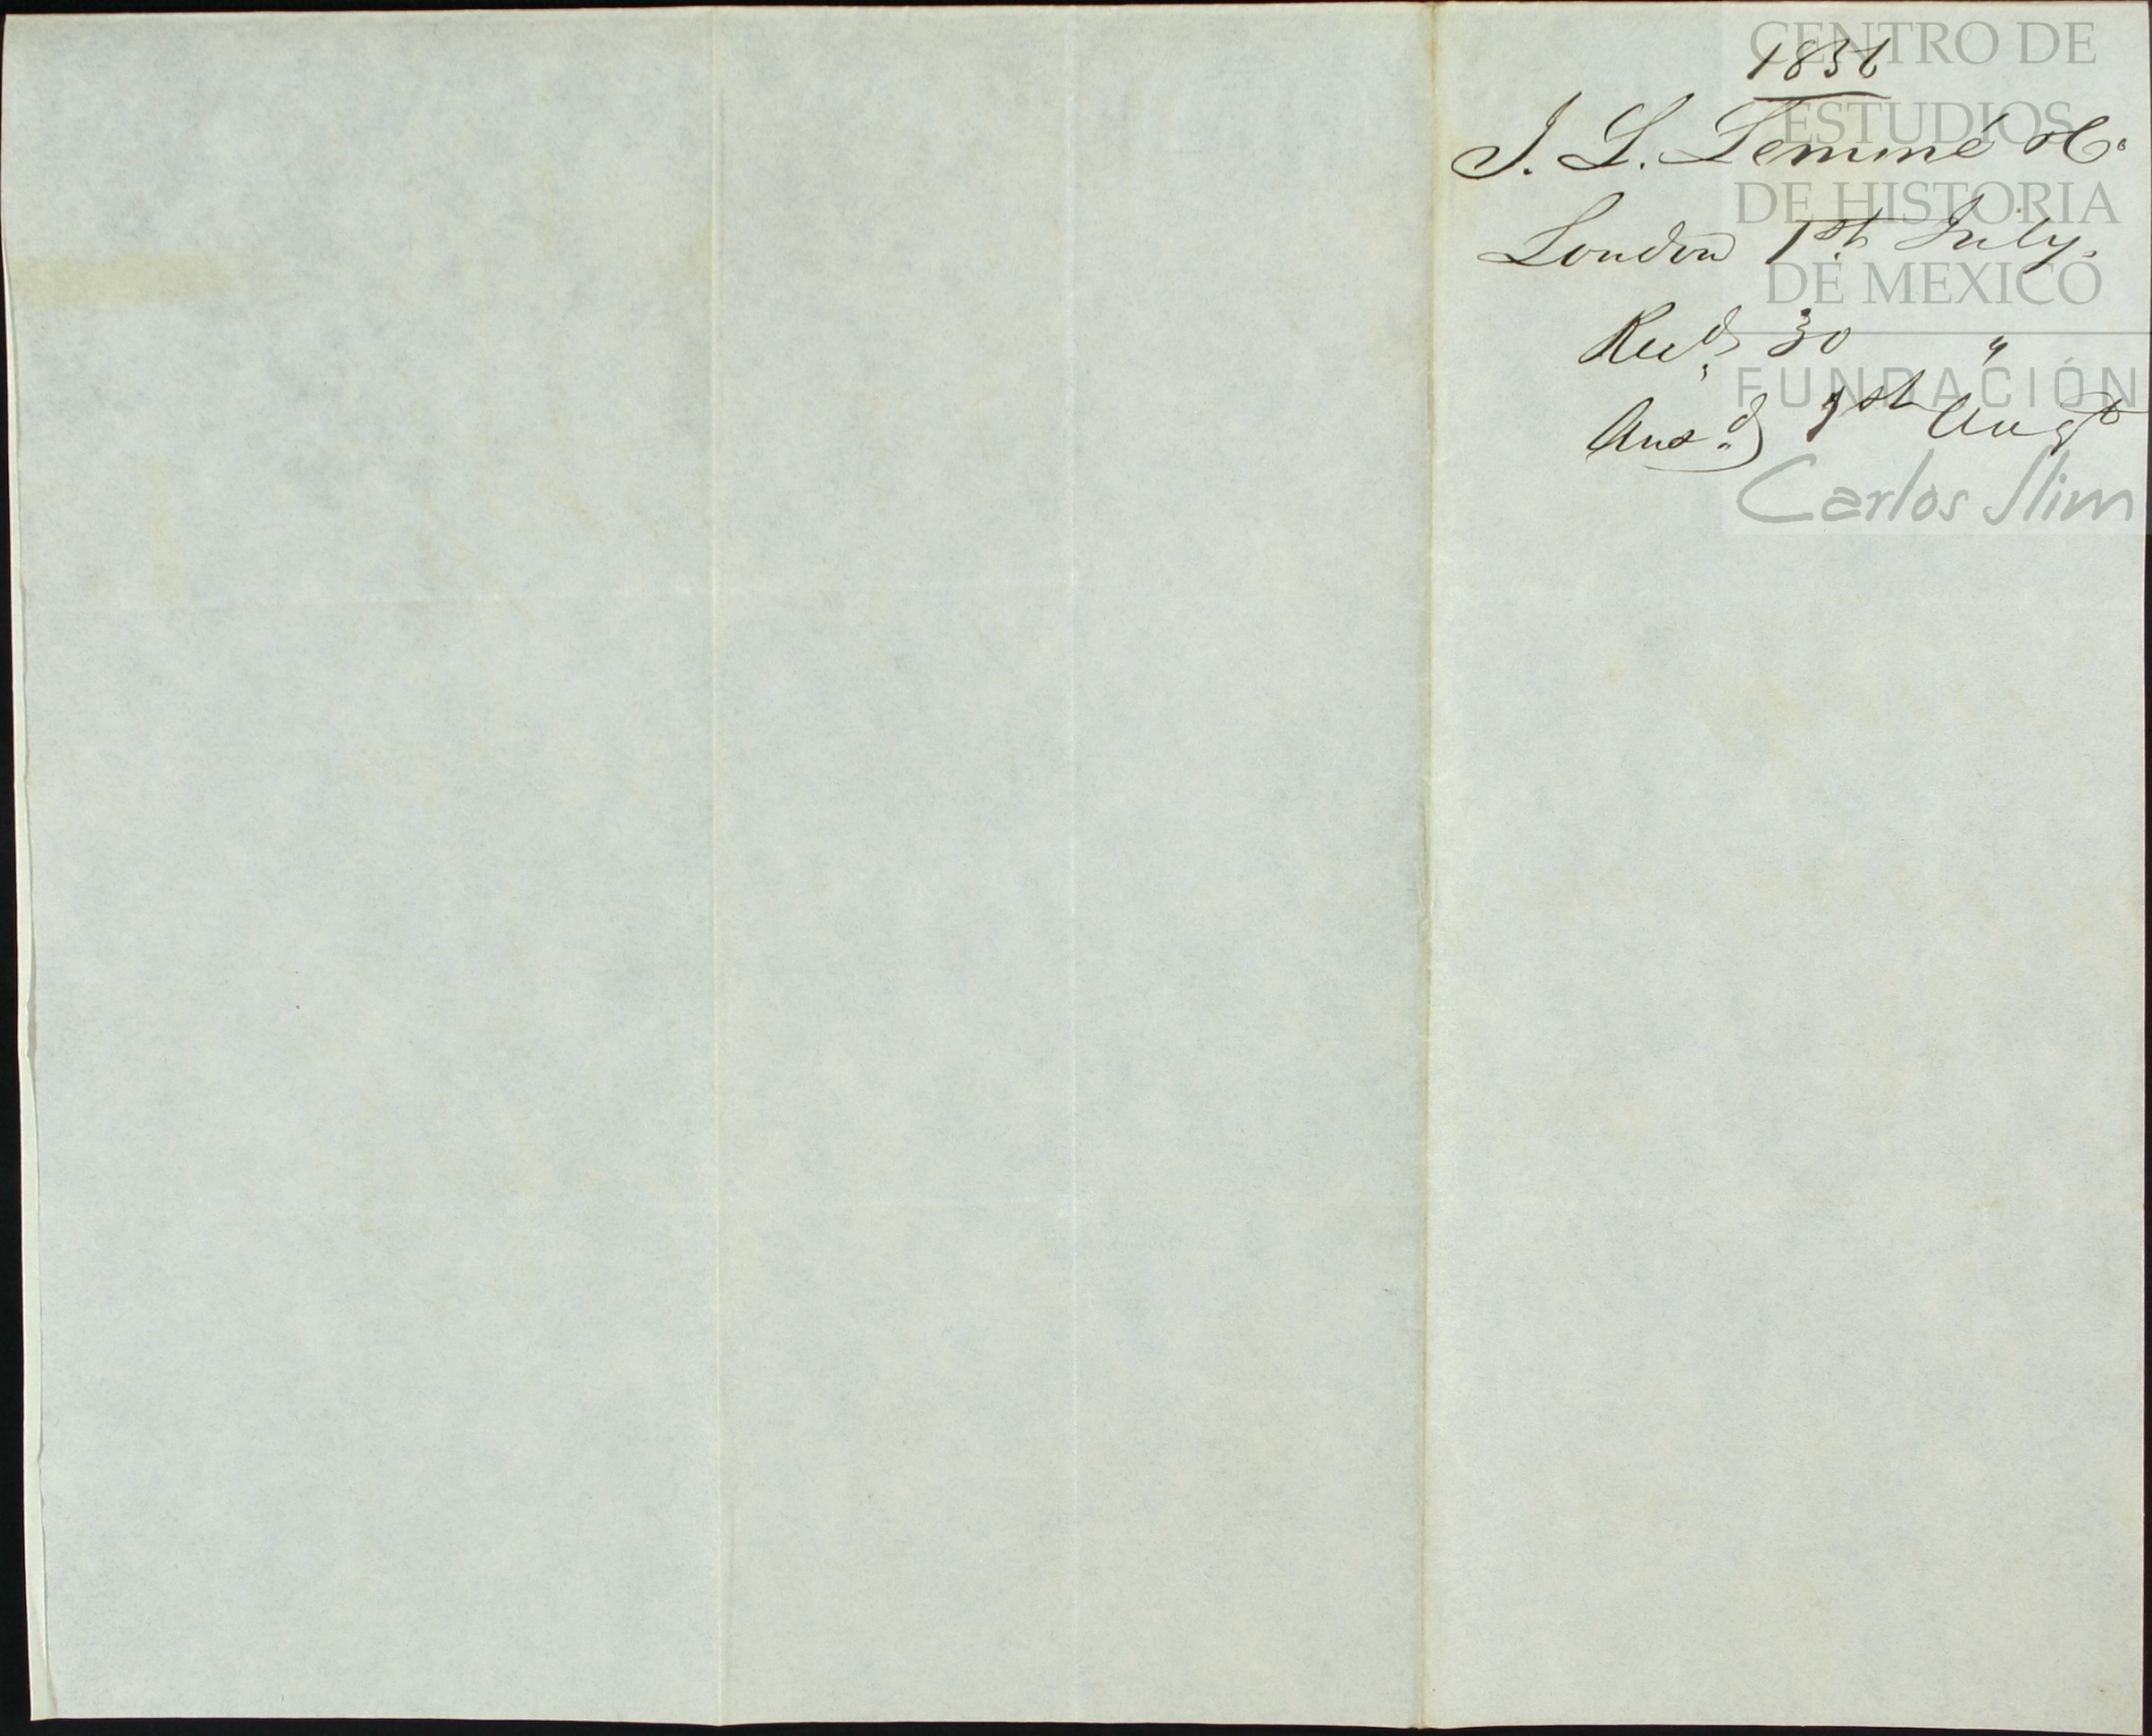 1856
CENTRO DE
ESTUDIOS
J. L. Lemmé & Co.
DE HISTORIA
London 1st July.
DE MEXICO
Recd. 30 "
FUNDACIÓN
Ansd. 1st Augt
Carlos Slim